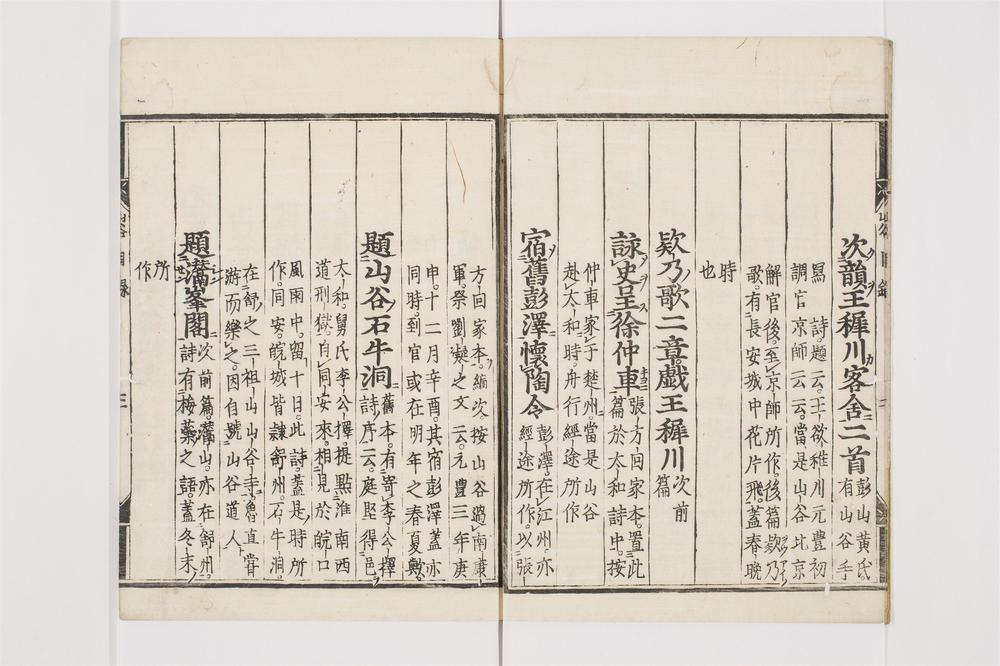 次韻王穉川客舍二首
彭山黄氏
有山谷手
冩詩題云王欲稚川元豊初
調官京師云云當是山谷北京
解官後至京師所作後篇欸乃
歌有長安城中花片飛蓋春晚
時
也
欸乃歌二章戯王穉川
次前
篇
詠史呈徐仲車
張方回家本置此
篇於太和詩中按
仲車家于楚州當是山谷
赴太和時舟行經途所作
宿舊彭澤懷陶令
彭澤在江州亦
經途所作以張
方回家本編次按山谷過南康
軍祭劉凝之文云元豊三年庚
申十二月辛酉其宿彭澤蓋亦
同時到官或在明年之春夏歟
題山谷石牛洞
舊本有寄李公擇
詩序云庭堅得邑
太和舅氏李公擇提點淮南西
道刑獄自同安來相見於皖口
風雨中留十日此詩蓋是時所
作同安皖城皆隷舒州石牛洞
在舒之三祖山山谷寺魯直甞
游而樂之因自號山谷道人
題灊峯閣
次前篇灊山亦在舒州
詩有梅蘂之語蓋冬末
所
作